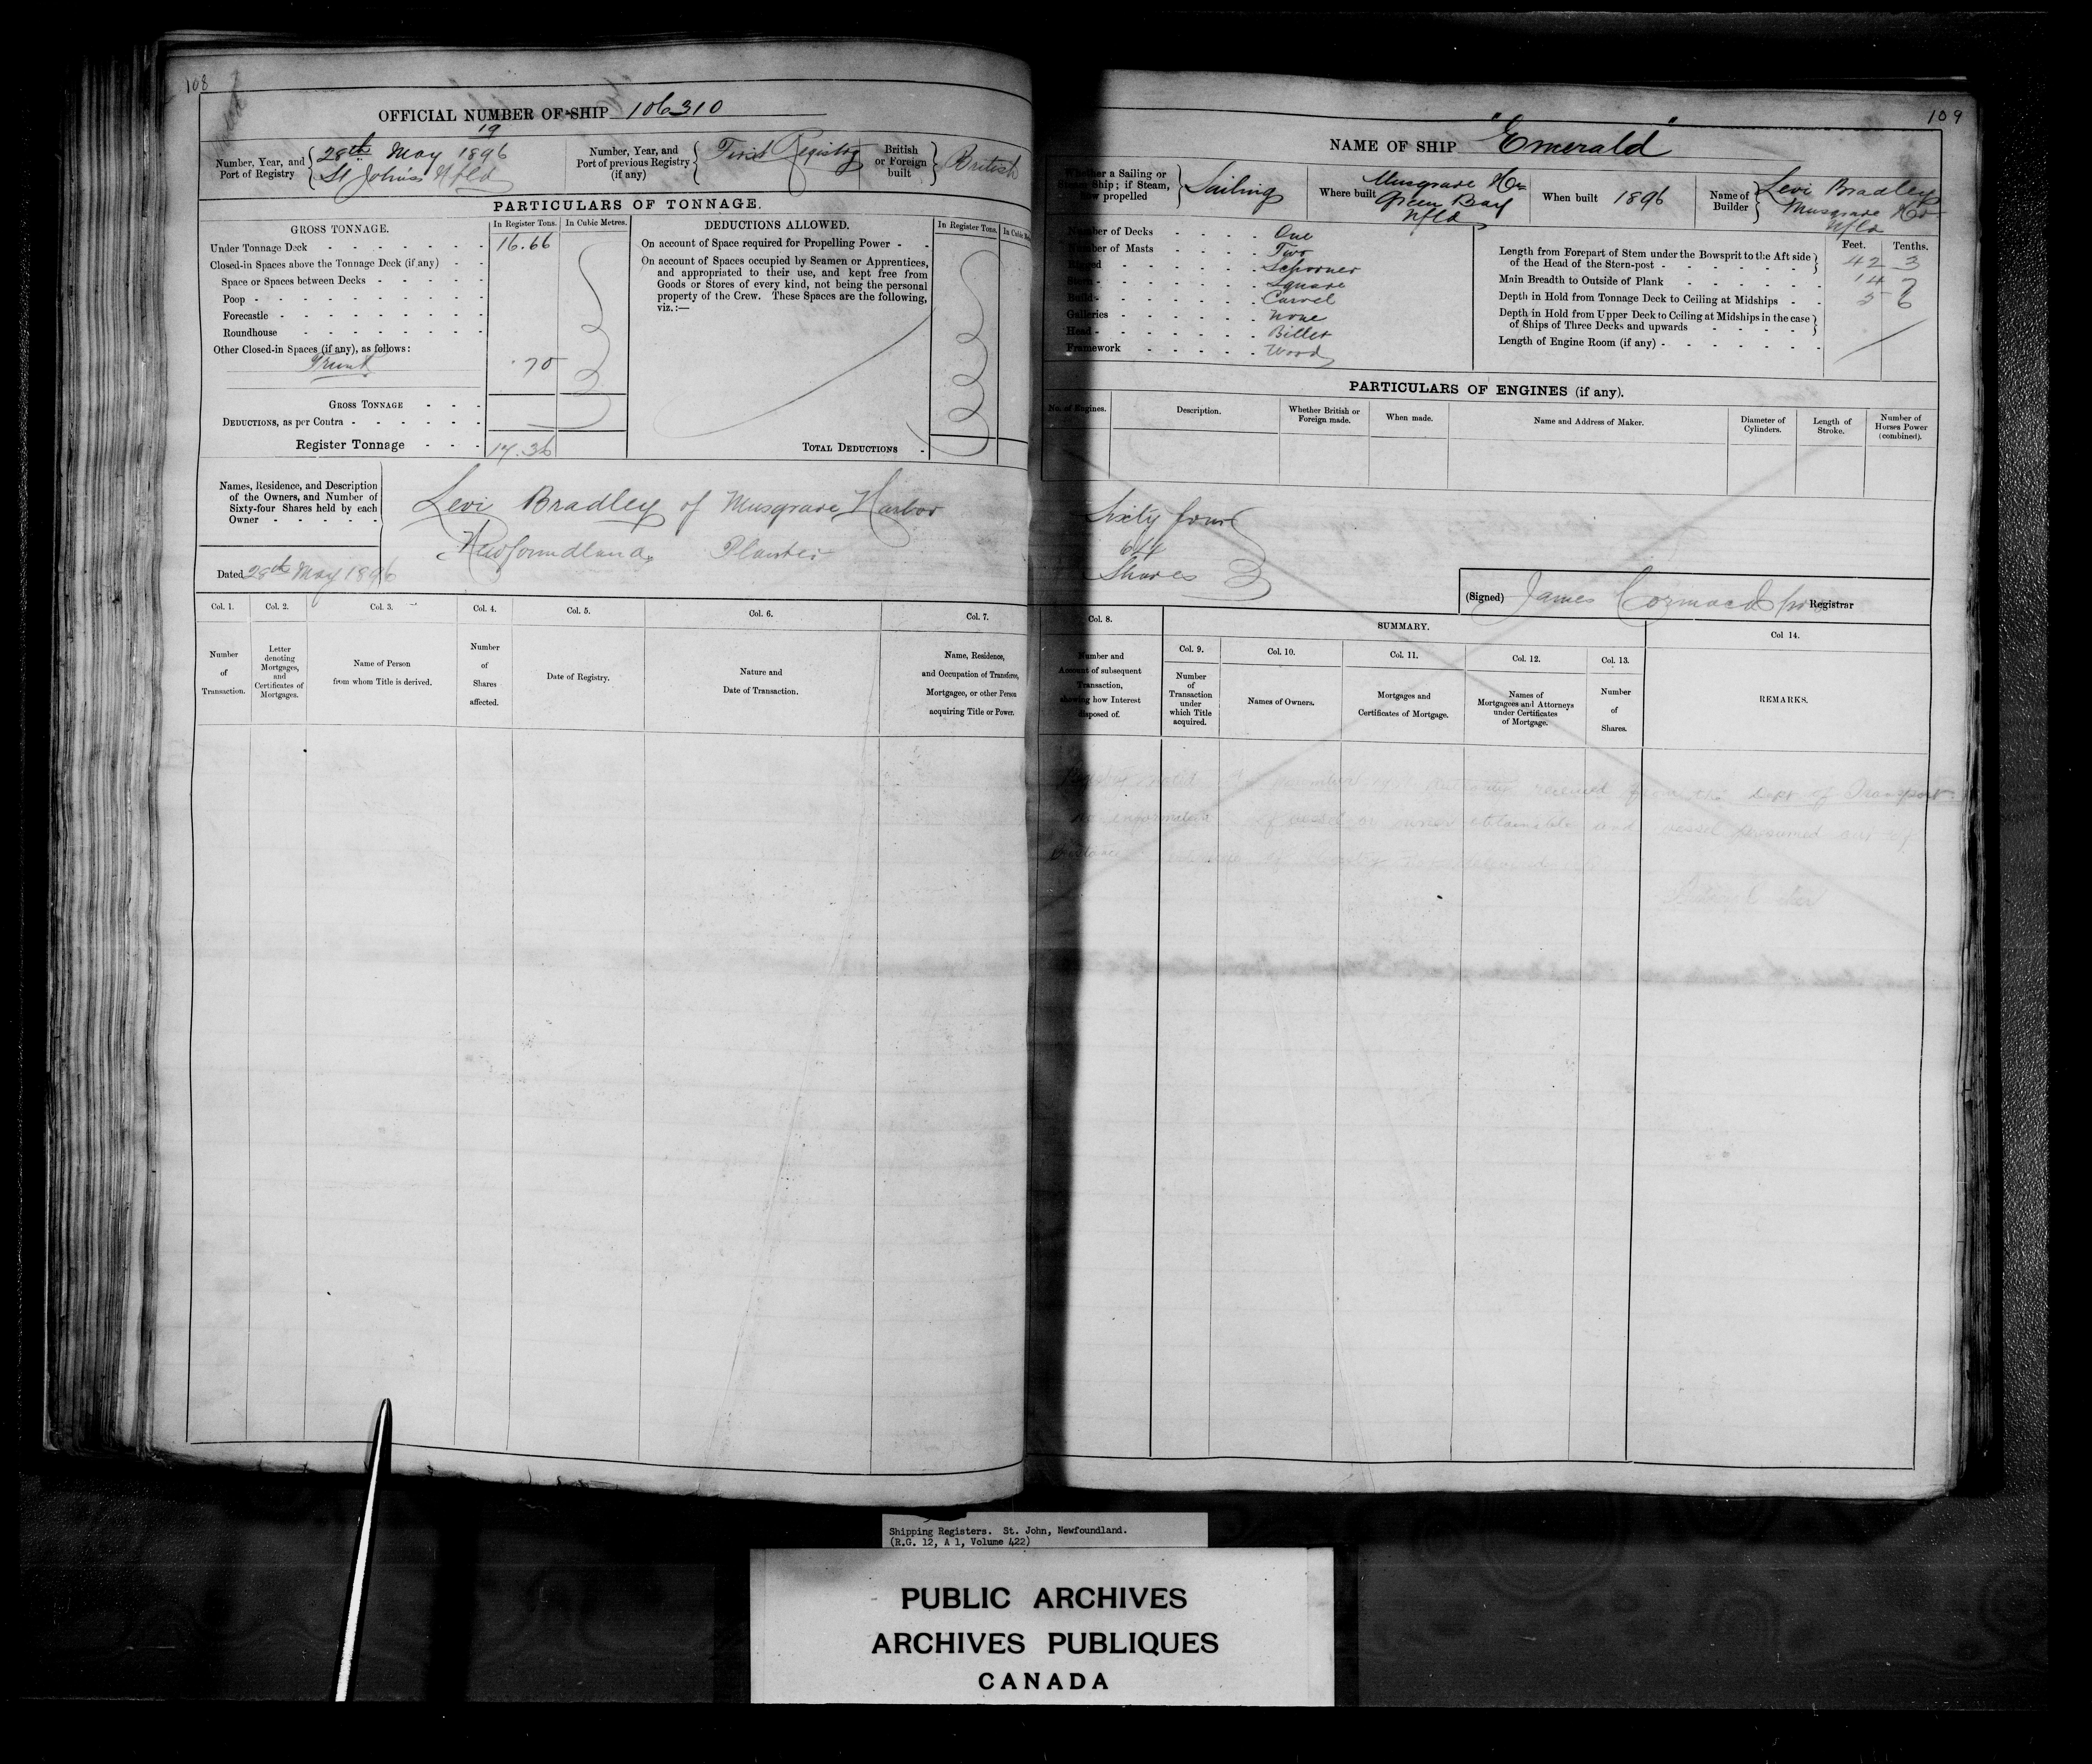 108
OFFICIAL NUMBER OF SHIP 106310
Number, Year, and Port of Registry
19
28th May 1896
St John's Nfld
Number, Year, and Port of previous Registry (if any)
First Registry
British or Foreign built
British
PARTICULARS OF TONNAGE.
GROSS TONNAGE.
In Register Tons.
In Cubic Metres.
Under Tonnage Deck 16.66
Closed-in Spaces above the Tonnage Deck (if any)
Space or Spaces between Decks
Poop
Forecastle
Roundhouse
Other Closed-in Spaces (if any), as follows:
Trunk .70
GROSS TONNAGE
DEDUCTIONS, as per Contra
Register Tonnage 17.36
DEDUCTIONS ALLOWED.
In Register Tons.
On account of Space required for Propelling Power
On account of Spaces occupied by Seamen or Apprentices,
and appropriated to their use, and kept free from
Goods or Stores of every kind, not being the personal
property of the Crew. These Spaces are the following,
viz.:—
TOTAL DEDUCTIONS
Names, Residence, and Description
of the Owners, and Number of
Sixty-four Shares held by each
Owner
Levi Bradley of Musgrave Harbor
Newfoundland Planter
Dated 28th May 1896
Col. 1.
Number of Transaction.
Col. 2.
Letter denoting Mortgages, and Certificates of Mortgages.
Col. 3.
Name of Person from whom Title is derived.
Col. 4.
Number of Shares affected.
Col. 5.
Date of Registry.
Col. 6.
Nature and Date of Transaction.
Col. 7.
Name, Residence, and Occupation of Transferee, Mortgagee, or other Person acquiring Title or Power.
109
NAME OF SHIP "Emerald"
Whether a Sailing or Steam Ship; if Steam, how propelled
Sailing
Where built
Musgrave Hr
Green Bay
Nfld
When built 1896
Name of Builder
Levi Bradley
Musgrave Hr
Nfld
Number of Decks One
Number of Masts Two
Rigged Schooner
Stern Square
Build Carvel
Galleries None
Head Billet
Framework Wood
Feet. Tenths.
Length from Forepart of Stem under the Bowsprit to the Aft side
of the Head of the Stern-post 42 3
Main Breadth to Outside of Plank 14 7
Depth in Hold from Tonnage Deck to Ceiling at Midships 5 6
Depth in Hold from Upper Deck to Ceiling at Midships in the case
of Ships of Three Decks and upwards
Length of Engine Room (if any)
PARTICULARS OF ENGINES (if any).
No. of Engines.
Description.
Whether British or Foreign made.
When made.
Name and Address of Maker.
Diameter of Cylinders.
Length of Stroke.
Number of Horses Power (combined).
Sixty four
64
Shares
(Signed) James Cormack Registrar
Col. 8.
Number and Account of subsequent Transaction, showing how Interest disposed of.
SUMMARY.
Col. 9.
Number of Transaction under which Title acquired.
Col. 10.
Names of Owners.
Col. 11.
Mortgages and Certificates of Mortgage.
Col. 12.
Names of Mortgagees and Attorneys under Certificates of Mortgage.
Col. 13.
Number of Shares.
Col 14.
REMARKS.
received from the Dept of Transport.
of vessel or owner obtainable and vessel presumed out of
Shipping Registers. St. John, Newfoundland.
(R.G. 12, A 1, Volume 422)
PUBLIC ARCHIVES
ARCHIVES PUBLIQUES
CANADA